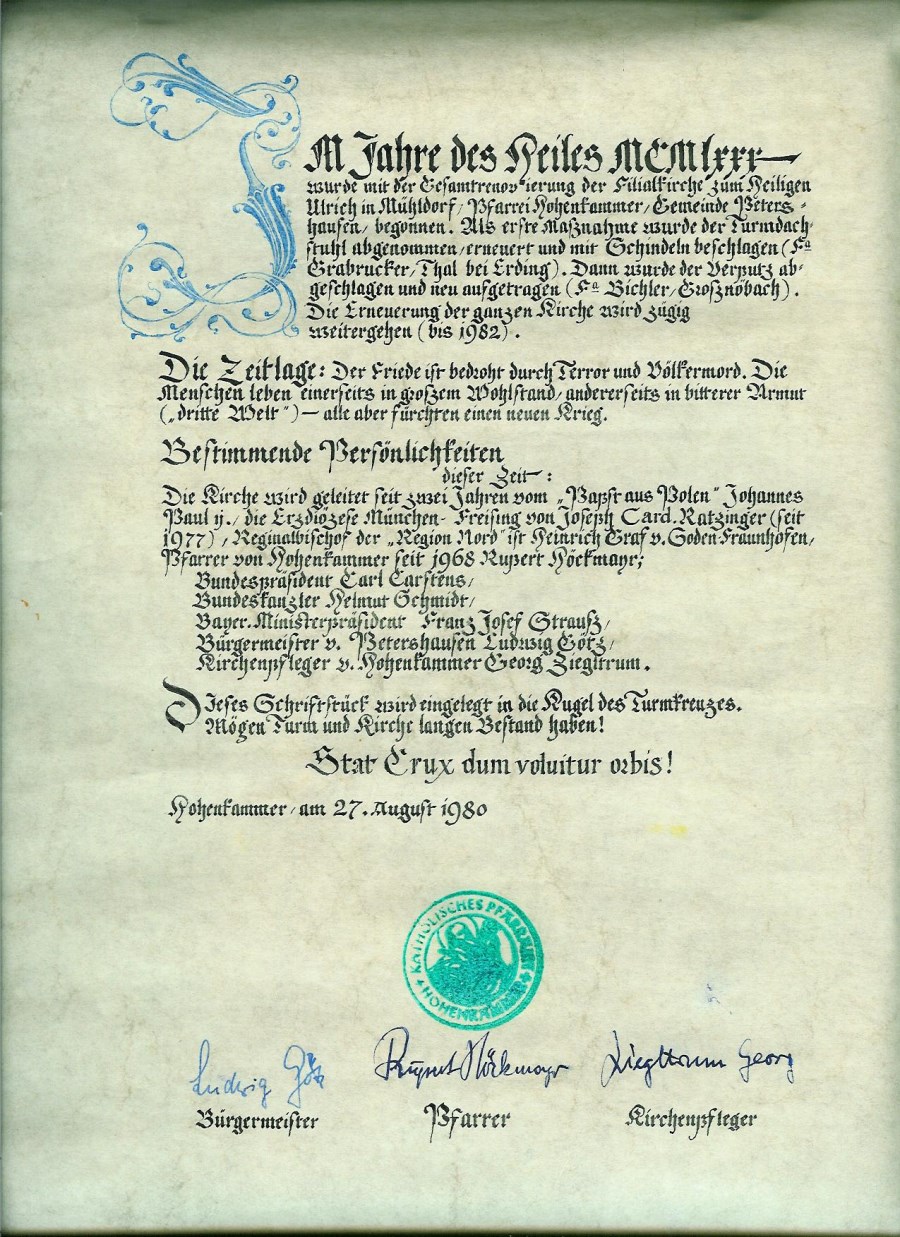 IM Jahre des Heiles MCMlxxx
wurde mit der Gesamtrenovierung der Filialkirche zum Heiligen
Ulrich in Mühldorf, Pfarrei Hohenkammer, Gemeinde Peters-
hausen, begonnen. Als erste Maßnahme wurde der Turmdach-
stuhl abgenommen, erneuert und mit Schindeln beschlagen (Fa
Grabrucker, Thal bei Erding). Dann wurde der Verputz ab-
geschlagen und neu aufgetragen (Fa Bichler, Grosznöbach).
Die Erneuerung der ganzen Kirche wird zügig
weitergehen (bis 1982).
Die Zeitlage: Der Friede ist bedroht durch Terror und Völkermord. Die
Menschen leben einerseits in groszem Wohlstand, andererseits in bitterer Armut
(„dritte Welt") — alle aber fürchten einen neuen Krieg.
Bestimmende Persönlichkeiten
dieser Zeit:
Die Kirche wird geleitet seit zwei Jahren vom „Papst aus Polen" Johannes
Paul ij., die Erzdiözese München-Freising von Joseph Card. Ratzinger (seit
1977), Reginalbischof der „Region Nord" ist Heinrich Graf v. Soden-Fraunhofen,
Pfarrer von Hohenkammer seit 1968 Rupert Höckmayr;
Bundespräsident Carl Carstens,
Bundeskanzler Helmut Schmidt,
Bayer. Ministerpräsident Franz Josef Strausz,
Bürgermeister v. Petershausen Ludwig Götz,
Kirchenpfleger v. Hohenkammer Georg Ziegltrum.
Dieses Schriftstück wird eingelegt in die Kugel des Turmkreuzes.
Mögen Turm und Kirche langen Bestand haben!
Stat Crux dum volvitur orbis!
Hohenkammer, am 27. August 1980
KATHOLISCHES PFARRAMT
+ HOHENKAMMER +
Ludwig Götz Rupert Höckmayr Ziegltrum Georg
Bürgermeister Pfarrer Kirchenpfleger